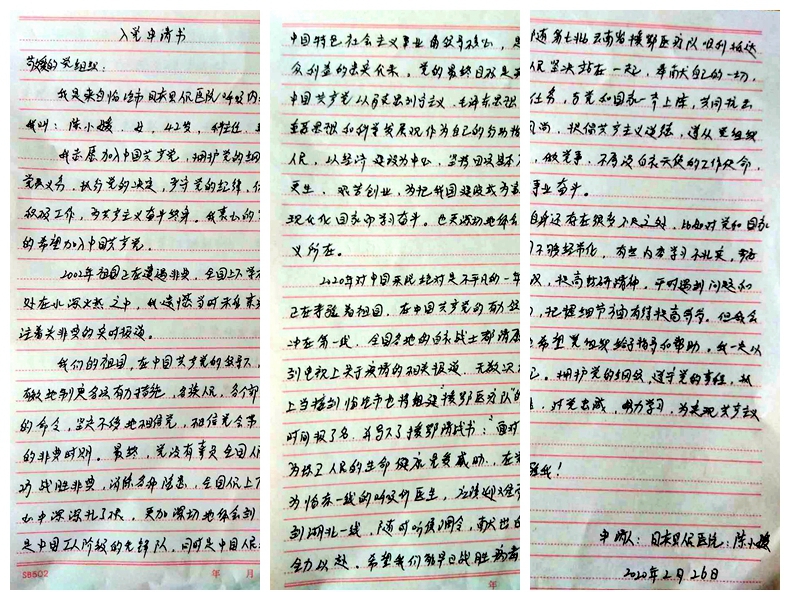 入党申请书
敬爱的党组织:
我是来自临沧市
我叫:陈小媛、女,42岁,
我志愿加入中国共产党,拥护党的纲
党员义务,执行党的决定,严守党的纪律,
积极工作,为共产主义奋斗终身。
的希望加入中国共产党。
2002年祖国正在遭遇非典,全国上下
处在水深火热之中,我遗憾当时未能
注着关非典的实时报道。
我们的祖国,在中国共产党的领导下,
有效地制定各项有力措施,各族人民,各个部
的命令,坚定不移地相信党,相信党会带
的非典时期。最终,党没有辜负全国人
功战胜非典,消除各种隐患,全国人民上下
心中深深扎了根,更加深切地体会到
是中国工人阶级的先锋队,同时是中国人民
S8502
年 月
中国特色社会主义事业的领导核心,
众利益的忠实代表,党的最终目标是
中国共产党以马克思列宁主义、毛泽东思想
重要思想和科学发展观作为自己的行动指
人民,以经济建设为中心,坚持四项基本
更生,艰苦创业,为把我国建设成为富
现代化国家而努力奋斗。也更深切地体会
义所在。
2020年对中国来说绝对是不平凡的一年
正在考验着祖国,在中国共产党的有力领
冲在第一线,全国各地的白衣战士都请
到电视上关于疫情的相关报道,无数次
上当接到临沧市也将组建“援鄂医疗队”的
时间报了名,并写下了援鄂请战书:“面对
为捍卫人民的生命健康免受威胁,
为临床一线的呼吸科医生,应该迎难
到湖北一线,随时听候调令,
全力以赴。希望我们能早日战胜病毒
年
随第七批云南省援鄂医疗队顺利抵达
人民坚决站在一起,奉献自己的一切,
任务,与党和国家一个上阵,共同抗击
风尚,提倡共产主义道德,遵从党组织
,做党事,不辱没白衣天使的工作使命,
事业奋斗。
自身还存在很多不足之处,比如对党和国家
不够经常化,有些内容学习不扎实,
议,提高钻研精神。平时遇到问题和
,把握细节方面有待提高等等。但我会
也希望党组织给予指导和帮助。我一定以
己。拥护党的纲领,遵守党的章程,执
,对党忠诚,努力学习,为实现共产主义
验我!
申请人:
陈小媛
2020年2月26日